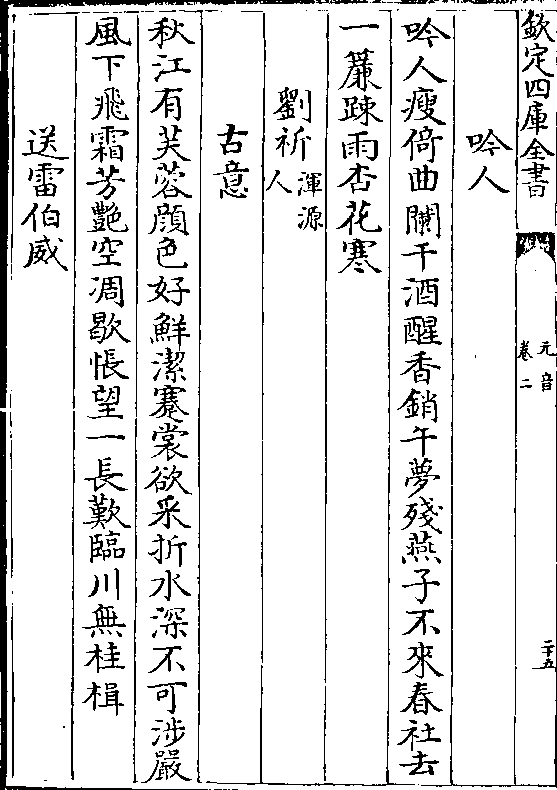 欽定四庫全書
元音
卷二
二十五
吟人
吟人瘦倚曲闌干酒醒香銷午夢殘燕子不來春社去
一簾踈雨杏花寒
劉祈渾源人
古意
秋江有芙蓉顔色好鮮潔蹇裳欲采折水深不可涉嚴
風下飛霜芳艷空凋歇悵望一長歎臨川無桂楫
送雷伯威